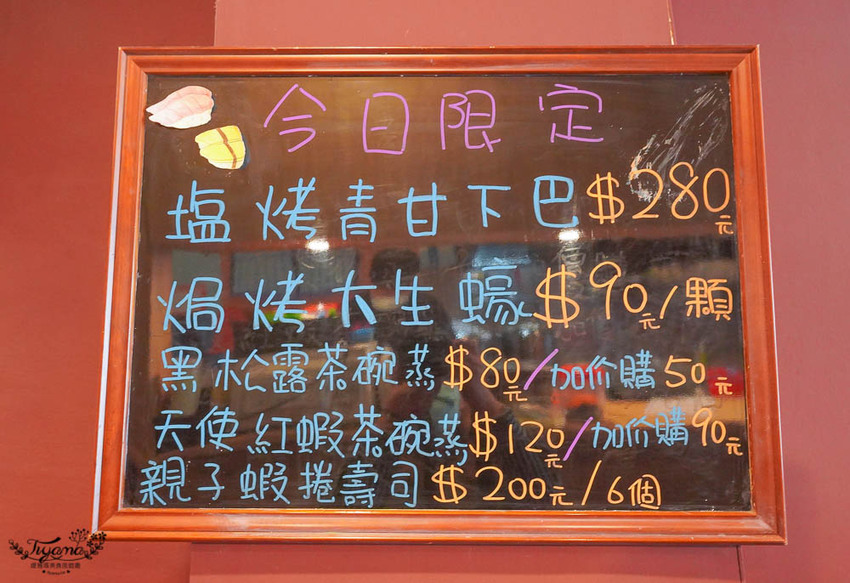 今日限定
塩烤青甘下巴$280元
焗烤大生蠔$90元/顆
黑松露茶碗蒸$80元/加价購50元
天使紅蝦茶碗蒸$120元/加价購90元
親子蝦捲壽司$200元/6個
Tiyama